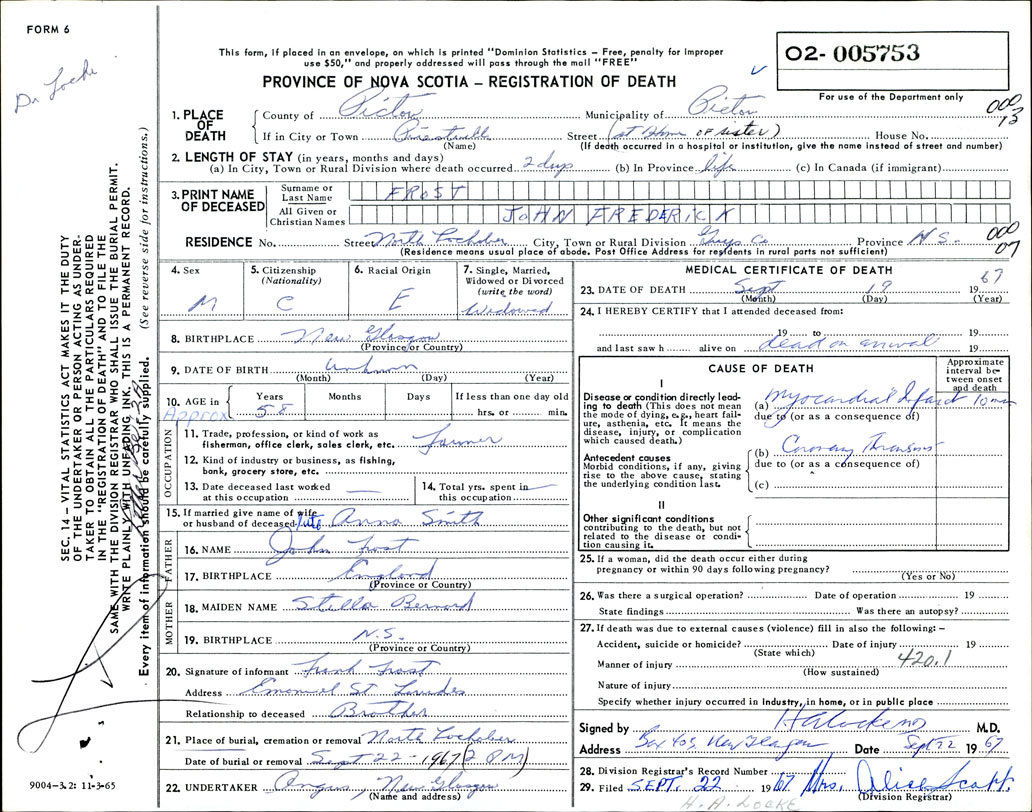 FORM 6
Dr Locke
This form, if placed in an envelope, on which is printed "Dominion Statistics – Free, penalty for improper
use $50," and properly addressed will pass through the mail "FREE"
PROVINCE OF NOVA SCOTIA – REGISTRATION OF DEATH
O2- 005753
For use of the Department only
000
13
1. PLACE OF DEATH
County of Pictou Municipality of Pictou
If in City or Town Street (at Home of sister) House No.
(Name) (If death occurred in a hospital or institution, give the name instead of street and number)
2. LENGTH OF STAY (in years, months and days)
(a) In City, Town or Rural Division where death occurred 2 days (b) In Province life (c) In Canada (if immigrant)
3. PRINT NAME OF DECEASED
Surname or Last Name FROST
All Given or Christian Names JOHN FREDERICK
RESIDENCE No. Street North Lochaber City, Town or Rural Division Guys Co Province N.S.
000
07
(Residence means usual place of abode. Post Office Address for residents in rural parts not sufficient)
4. Sex M
5. Citizenship (Nationality) C
6. Racial Origin E
7. Single, Married, Widowed or Divorced (write the word) Widowed
8. BIRTHPLACE New Glasgow
(Province or Country)
9. DATE OF BIRTH unknown
(Month) (Day) (Year)
10. AGE in Approx Years 58 Months Days If less than one day old hrs. or min.
OCCUPATION
11. Trade, profession, or kind of work as fisherman, office clerk, sales clerk, etc. Farmer
12. Kind of industry or business, as fishing, bank, grocery store, etc.
13. Date deceased last worked at this occupation —
14. Total yrs. spent in this occupation —
15. If married give name of wife or husband of deceased late Anna Smith
FATHER
16. NAME John Frost
17. BIRTHPLACE England
(Province or Country)
MOTHER
18. MAIDEN NAME Stella Bernard
19. BIRTHPLACE N.S.
(Province or Country)
20. Signature of informant Frank Frost
Address Emanuel St
Relationship to deceased Brother
21. Place of burial, cremation or removal North Lochaber
Date of burial or removal Sept 22 - 1967 (2 PM)
22. UNDERTAKER Angus, New Glasgow
(Name and address)
MEDICAL CERTIFICATE OF DEATH
23. DATE OF DEATH Sept 19 1967
(Month) (Day) (Year)
24. I HEREBY CERTIFY that I attended deceased from:
19 to 19
and last saw h alive on dead on arrival 19
CAUSE OF DEATH
Approximate interval between onset and death
I
Disease or condition directly leading to death (This does not mean the mode of dying, e.g., heart failure, asthenia, etc. It means the disease, injury, or complication which caused death.)
(a) Myocardial Infarct 10 min
due to (or as a consequence of)
Antecedent causes
Morbid conditions, if any, giving rise to the above cause, stating the underlying condition last.
(b) Coronary Thrombosis
due to (or as a consequence of)
(c)
II
Other significant conditions contributing to the death, but not related to the disease or condition causing it.
25. If a woman, did the death occur either during pregnancy or within 90 days following pregnancy?
(Yes or No)
26. Was there a surgical operation? Date of operation 19
State findings Was there an autopsy?
27. If death was due to external causes (violence) fill in also the following: –
Accident, suicide or homicide? Date of injury 19
(State which)
Manner of injury 420.1
(How sustained)
Nature of injury
Specify whether injury occurred in Industry, in home, or in public place
Signed by H A Locke MD M.D.
Address Box 403 New Glasgow Date Sept 22 1967
28. Division Registrar's Record Number
29. Filed SEPT. 22 1967 Mrs. Alice Scott
(Division Registrar)
H. A. LOCKE
SEC. 14 – VITAL STATISTICS ACT MAKES IT THE DUTY
OF THE UNDERTAKER OR PERSON ACTING AS UNDER-
TAKER TO OBTAIN ALL THE PARTICULARS REQUIRED
IN THE "REGISTRATION OF DEATH" AND TO FILE THE
SAME WITH THE DIVISION REGISTRAR WHO SHALL ISSUE THE BURIAL PERMIT.
WRITE PLAINLY WITH UNFADING INK. THIS IS A PERMANENT RECORD.
Every item of information should be carefully supplied. (See reverse side for instructions.)
9004-3.2: 11-3-65